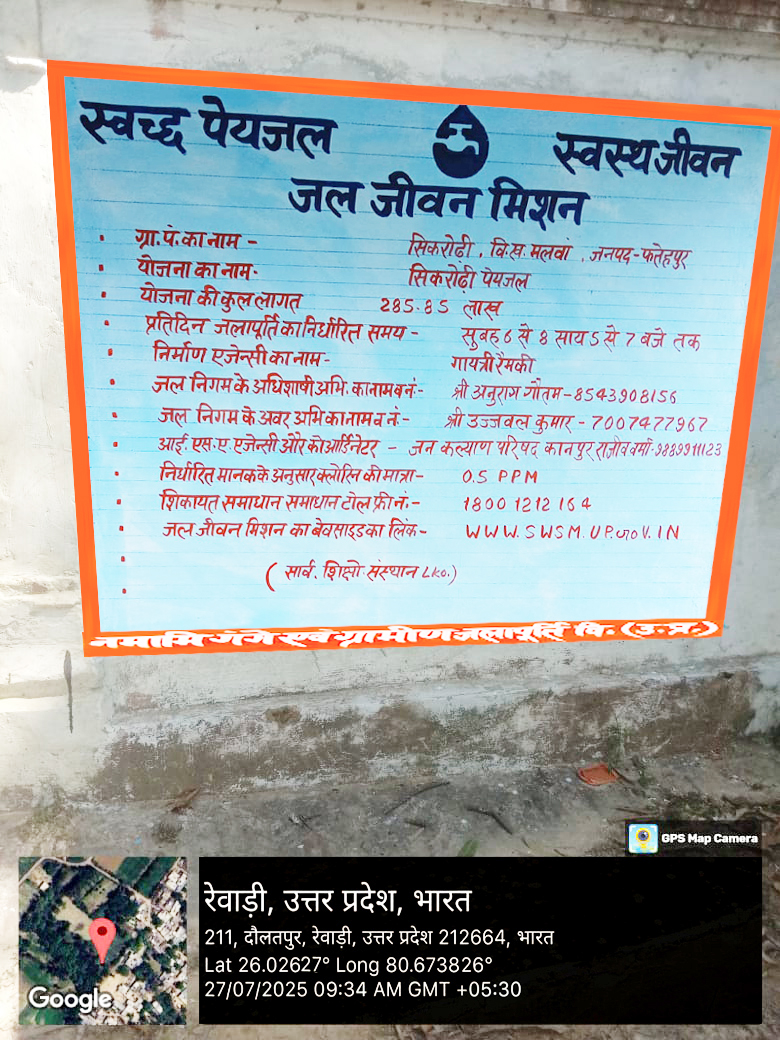 स्वच्छ पेयजल
स्वस्थ जीवन
जल जीवन मिशन
ग्रा.पं. का नाम - सिकरोढ़ी, वि.ख. मलवां, जनपद-फतेहपुर
योजना का नाम- सिकरोढ़ी पेयजल
योजना की कुल लागत 285.85 लाख
प्रतिदिन जलापूर्ति का निर्धारित समय - सुबह 6 से 8 साय 5 से 7 बजे तक
निर्माण एजेन्सी का नाम- गायत्री रैमकी
जल निगम के अधिशाषी अभि. का नाम व नं:- श्री अनुराग गौतम-8543908156
जल निगम के अवर अभि का नाम व नं:- श्री उज्जवल कुमार - 7007477967
आई. एस. ए एजेन्सी और कोआर्डिनेटर - जन कल्याण परिषद कानपुर राजीव वर्मा-9889911123
निर्धारित मानक के अनुसार क्लोरिन की मात्रा- 0.5 PPM
शिकायत समाधान समाधान टोल फ्री नं:- 1800 1212 164
जल जीवन मिशन का बेवसाइड का लिंक- WWW.SWSM.UP.GOV.IN
(सार्व. शिक्षो संस्थान Lko.)
नमामि गंगे एवं ग्रामीण जलापूर्ति वि. (उ.प्र.)
GPS Map Camera
रेवाड़ी, उत्तर प्रदेश, भारत
211, दौलतपुर, रेवाड़ी, उत्तर प्रदेश 212664, भारत
Lat 26.02627° Long 80.673826°
27/07/2025 09:34 AM GMT +05:30
Google